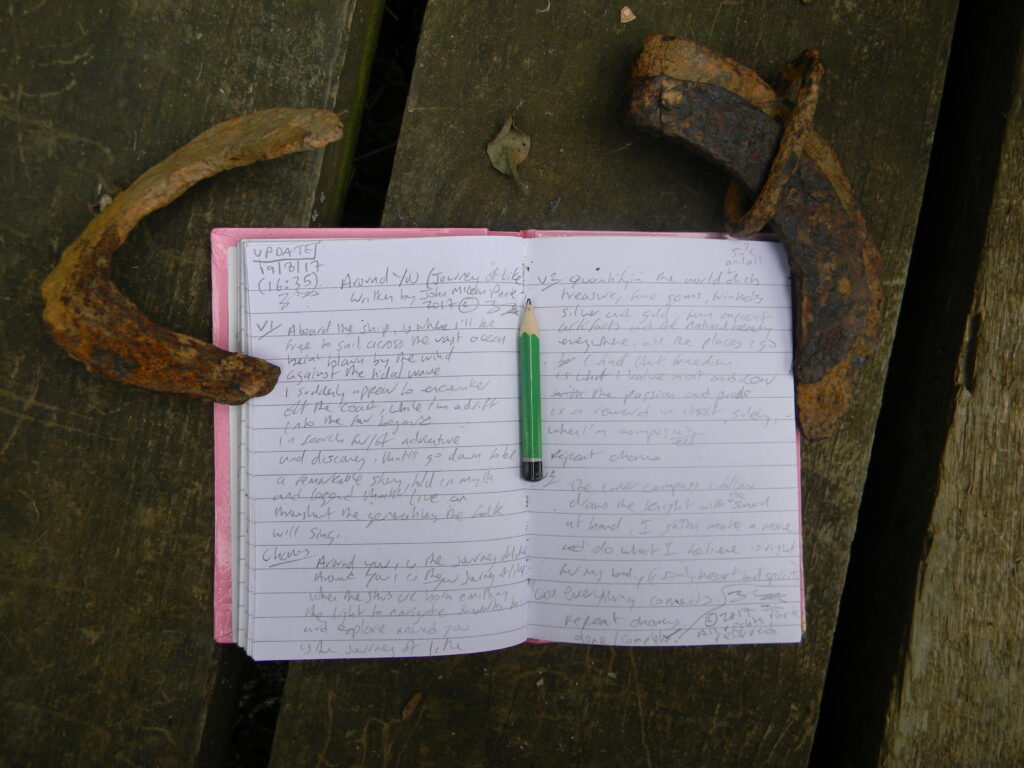 UPDATE
19/8/17
(16:35)
Around You (Journey of Life
Written by John McLean Park
2017 ©
V1 Aboard the ship, is where I'll be
free to sail across the vast ocean
being blown by the wind
against the tidal wave
I suddenly appear to encounter
off the coast, while I'm adrift
into the far beyond
in search for/of adventure
and discovery, that'll go down to be
a remarkable story, told in myth
and legend that'll live on
throughout the generations the folk
will sing.
Chorus
Around you, is the journey of life
Around you, is the journey of life
when the stars
the light to navigate towards to
and explore around you
is the journey of life
V2 Quantity in the world of its
treasure, fine gems, trinkets
silver and gold, fine ancient
artefacts and the natural beauty
everywhere, all the places I go
for I had that freedom
is what I value most
with the passion and pride
is a reward in itself, solely,
when I'm composing
repeat chorus
V3
The inner compass I follow
draws the knight with the sword
at hand, I gotta make a move
and do what I believe is right
for my body & soul, heart and spirit
'Cos everything connects
repeat chorus
© 2017 John Park
All rights reserved
done/complete